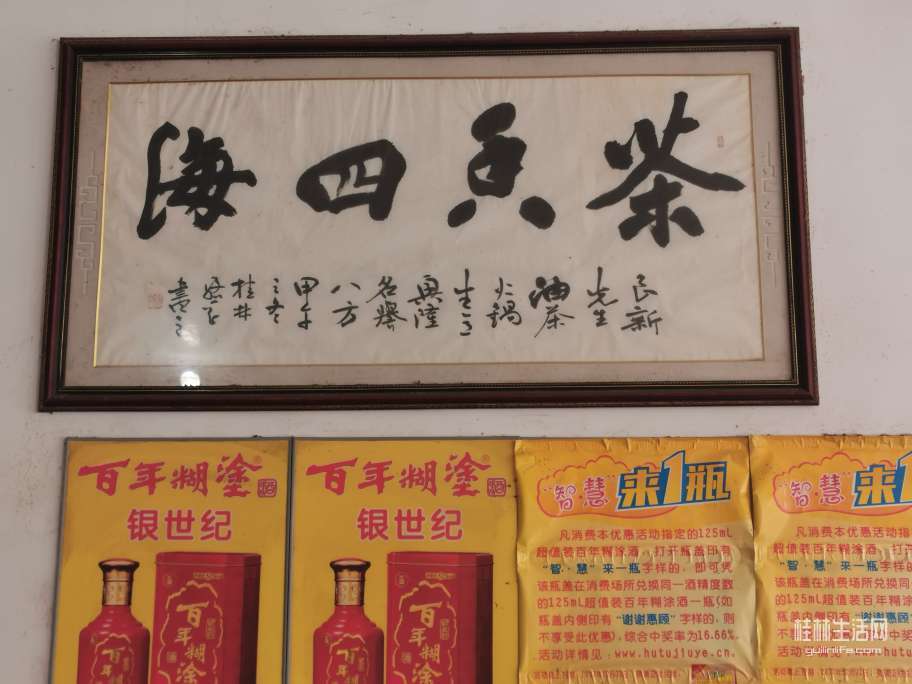 茶香四海
良新
先生
油茶
火鍋
生意
興隆
名譽
八方
甲午
之冬
桂林
百年糊塗
银世纪
百年糊塗
百年
百年糊塗
银世纪
百年糊塗
百年
"智·慧"来1瓶
凡消费本优惠活动指定的125mL
超值装百年糊涂酒，打开瓶盖印有
"智·慧"来一瓶字样的，即可凭
该瓶盖在消费场所兑换同一酒精度数
的125mL超值装百年糊涂酒一瓶(如
瓶盖内侧印有"谢谢惠顾"字样的，则
不享受此优惠)，综合中奖率为16.66%。
活动详情见：www.hutujiuye.cn
"智·慧"来1
凡消费本优惠活动指
超值装百年糊涂酒，打
"智·慧"来一瓶字
该瓶盖在消费场所兑换
的125mL超值装百年
瓶盖内侧印有"谢谢惠顾
桂林生活网
guilinlife.com